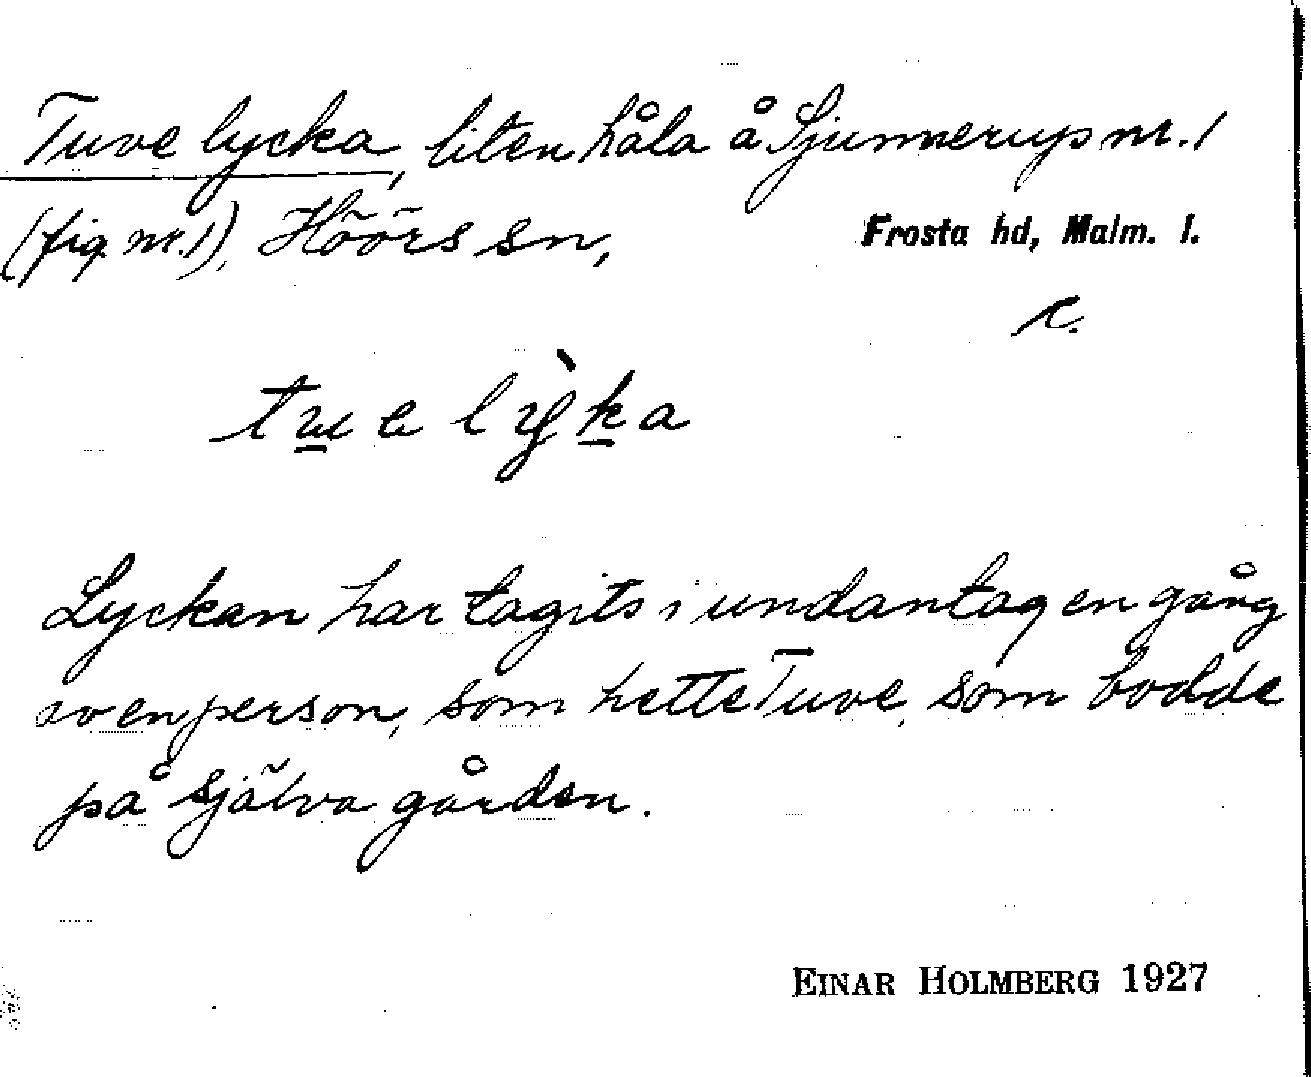 Tuve lycka, liten håla å Sjunnerup nr. 1
(fig. nr. 1), Höörs sn,
Frosta hd, Malm. l.
c.
Lyckan har tagits i undantag en gång
av en person, som hette Tuve, som bodde
på själva gården.
EINAR HOLMBERG 1927